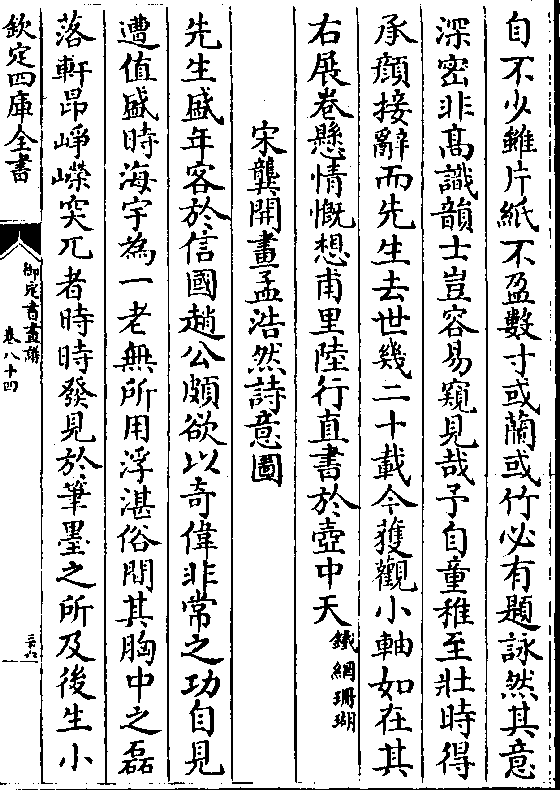 自不少雖片紙不盈數寸或蘭或竹必有題詠然其意
深密非髙識韻士豈容易窺見哉予自童稚至壯時得
承顔接辭而先生去世幾二十載今獲觀小軸如在其
右展卷懸情慨想甫里陸行直書於壺中天鐵網珊瑚
宋龔開畫孟浩然詩意圖
先生盛年客於信國趙公頗欲以奇偉非常之功自見
遭值盛時海宇為一老無所用浮湛俗間其胸中之磊
落軒昂崢嶸突兀者時時發見於筆墨之所及後生小
欽定四庫全書
御定書畫譜
卷八十四
三十八